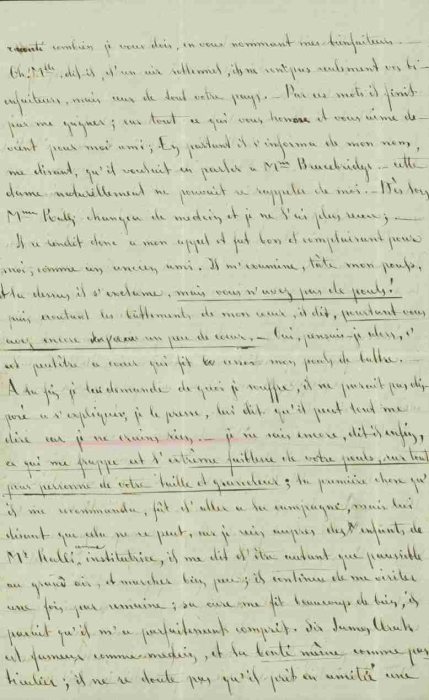 combien je vous dois, en vous nommant mes bienfaiteurs —
Oh, Mlle, dit-il, d'un air solennel, ils ne sont pas seulement vos bi-
enfaiteurs, mais ceux de tout votre pays. — Par ces mots il finit
par me gagner; car tout ce qui vous honore et vous aime de-
vient pour moi ami; En partant il s'informa de mon nom,
me disant, qu'il voulait en parler à Mme Bracebridge — cette
dame naturellement ne pouvait se rappeler de moi. — Dès lors
Mme Ralli changea de medecin et je ne l'ai plus revu; —
Il se rendit donc a mon appel et fut bon et complaisant pour
moi; comme un ancien ami. Il m'examine, tâte mon pouls,
et la dessus il s'exclame, mais vous n'avez pas de pouls!
puis ecoutant les bâttements de mon cœur, il dit, pourtant vous
avez encore un peu de cœur. — Oui, pensais-je alors, c'
est peutêtre ce cœur qui fit cesser mon pouls de battre. —
A la fin je lui demande de quoi je souffre, il ne parait pas dis-
posé a s'expliquer, je le presse, lui dit qu'il peut tout me
dire car je ne crains rien. — je ne sais encore, dit-il enfin,
ce qui me frappe est l'extrême faiblesse de votre pouls, surtout
pour personne de votre taille et ; la première chose qu'
il me recommanda, fût d'aller a la campagne, mais lui
disant que cela ne se peut, car je suis auprès des enfants de
Mr Ralli comme institutrice, il me dit d'être autant que possible
au grand air, et marcher bien peu; il continue de me visiter
une fois par semaine; sa cure me fit beaucoup de bien, il
parait qu'il m'a parfaitement compris. Sir James Clark
est fameux comme medecin, et la bonté même comme par-
ticulier; il ne se doute pas qu'il prêt en amitié une